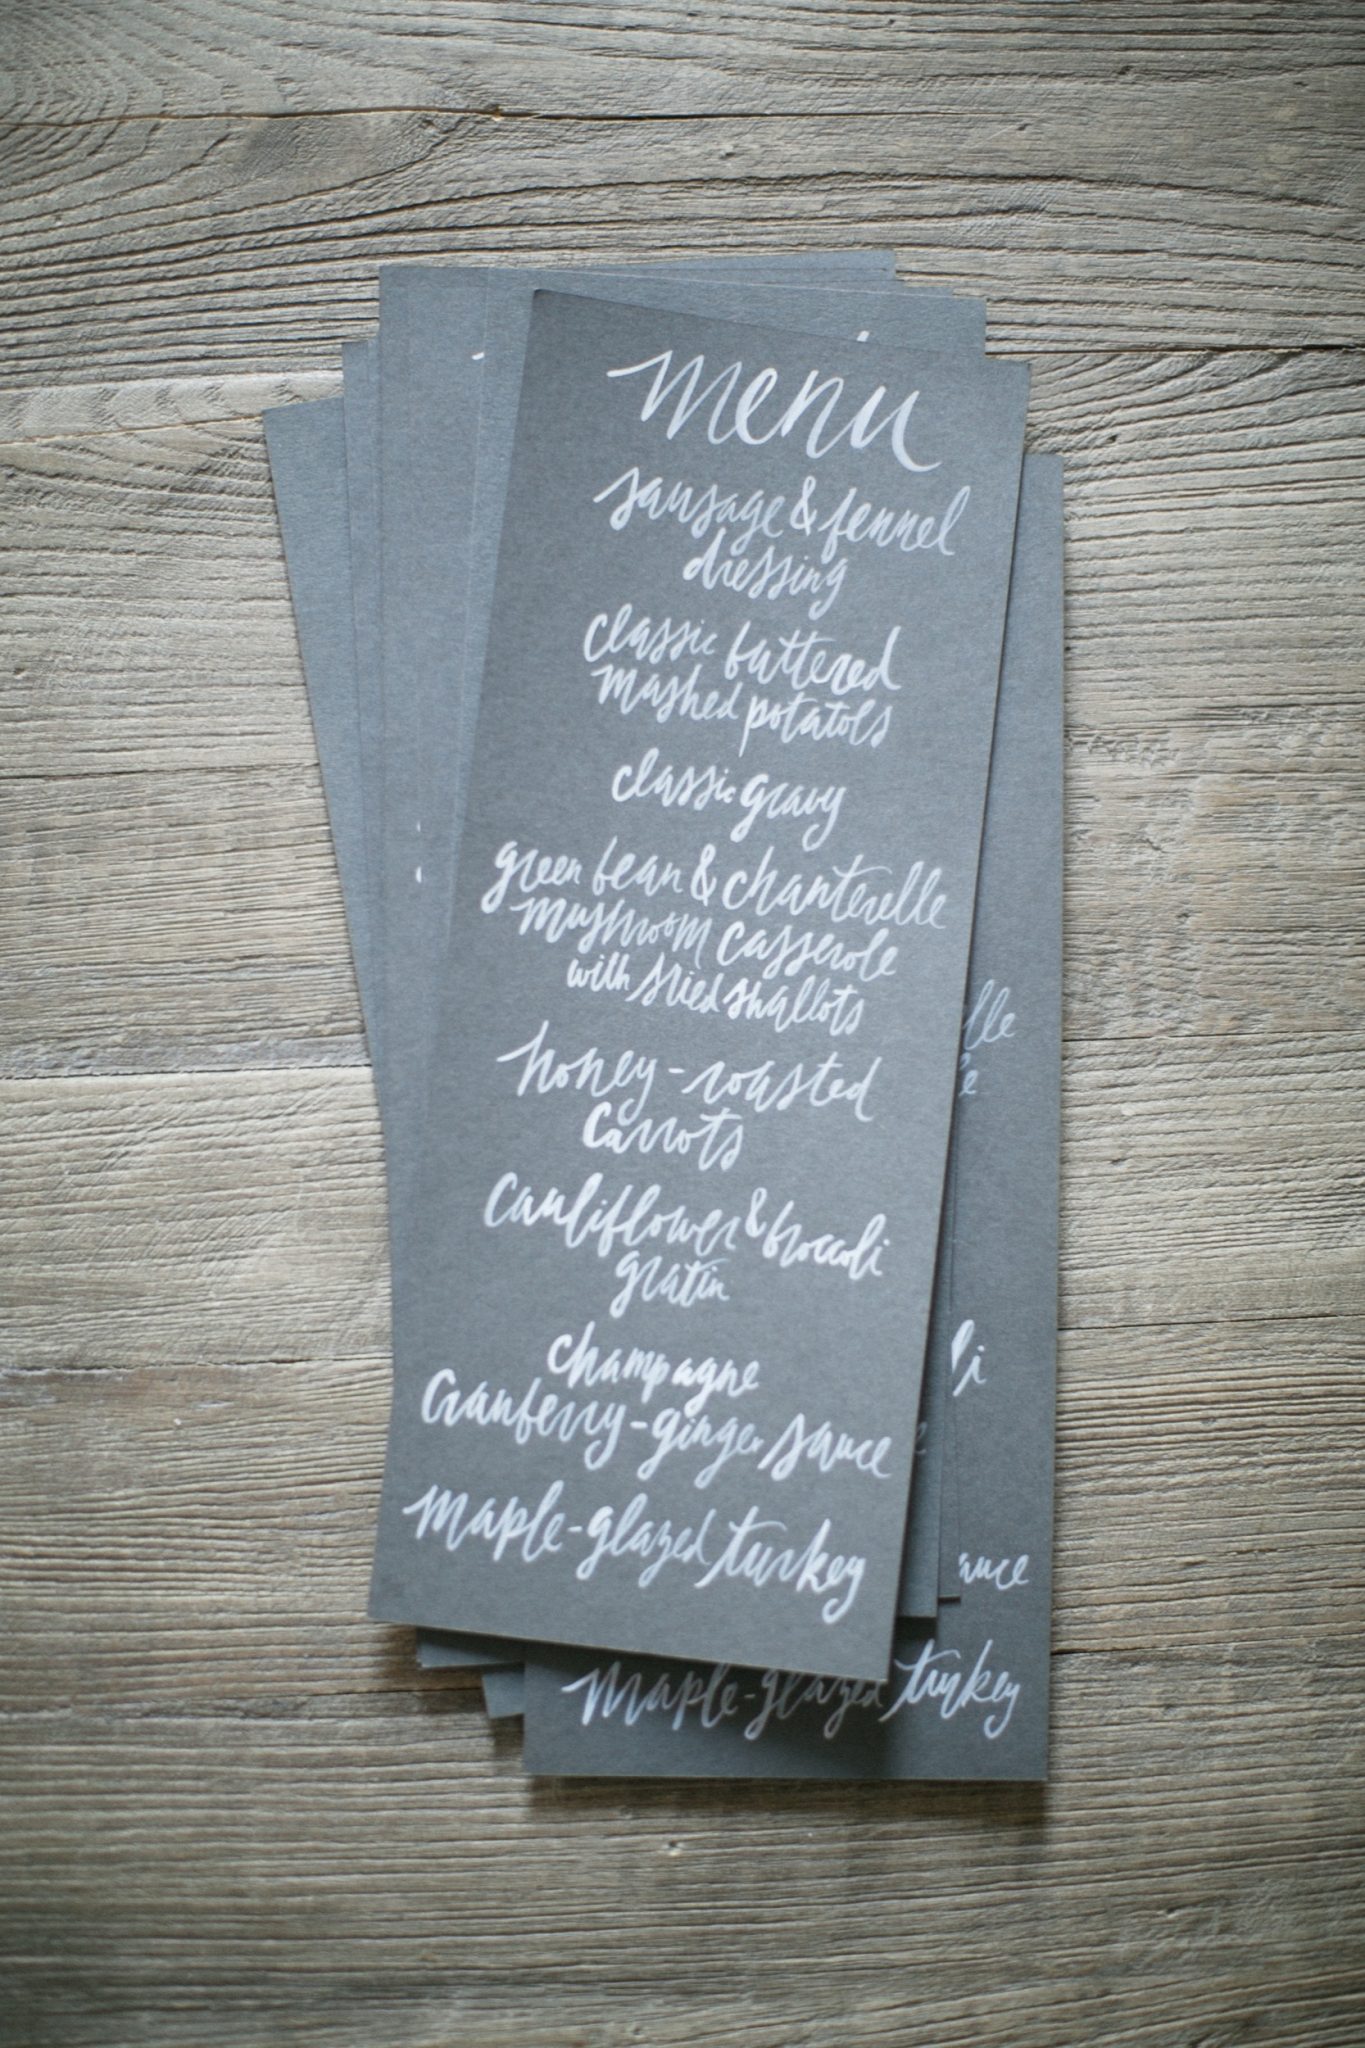 menu
sausage & fennel
dressing
classic buttered
mashed potatoes
classic gravy
green bean & chanterelle
mushroom casserole
with fried shallots
honey-roasted
carrots
cauliflower & broccoli
gratin
champagne
cranberry-ginger sauce
maple-glazed turkey
lle
e
li
auce
maple-glazed turkey